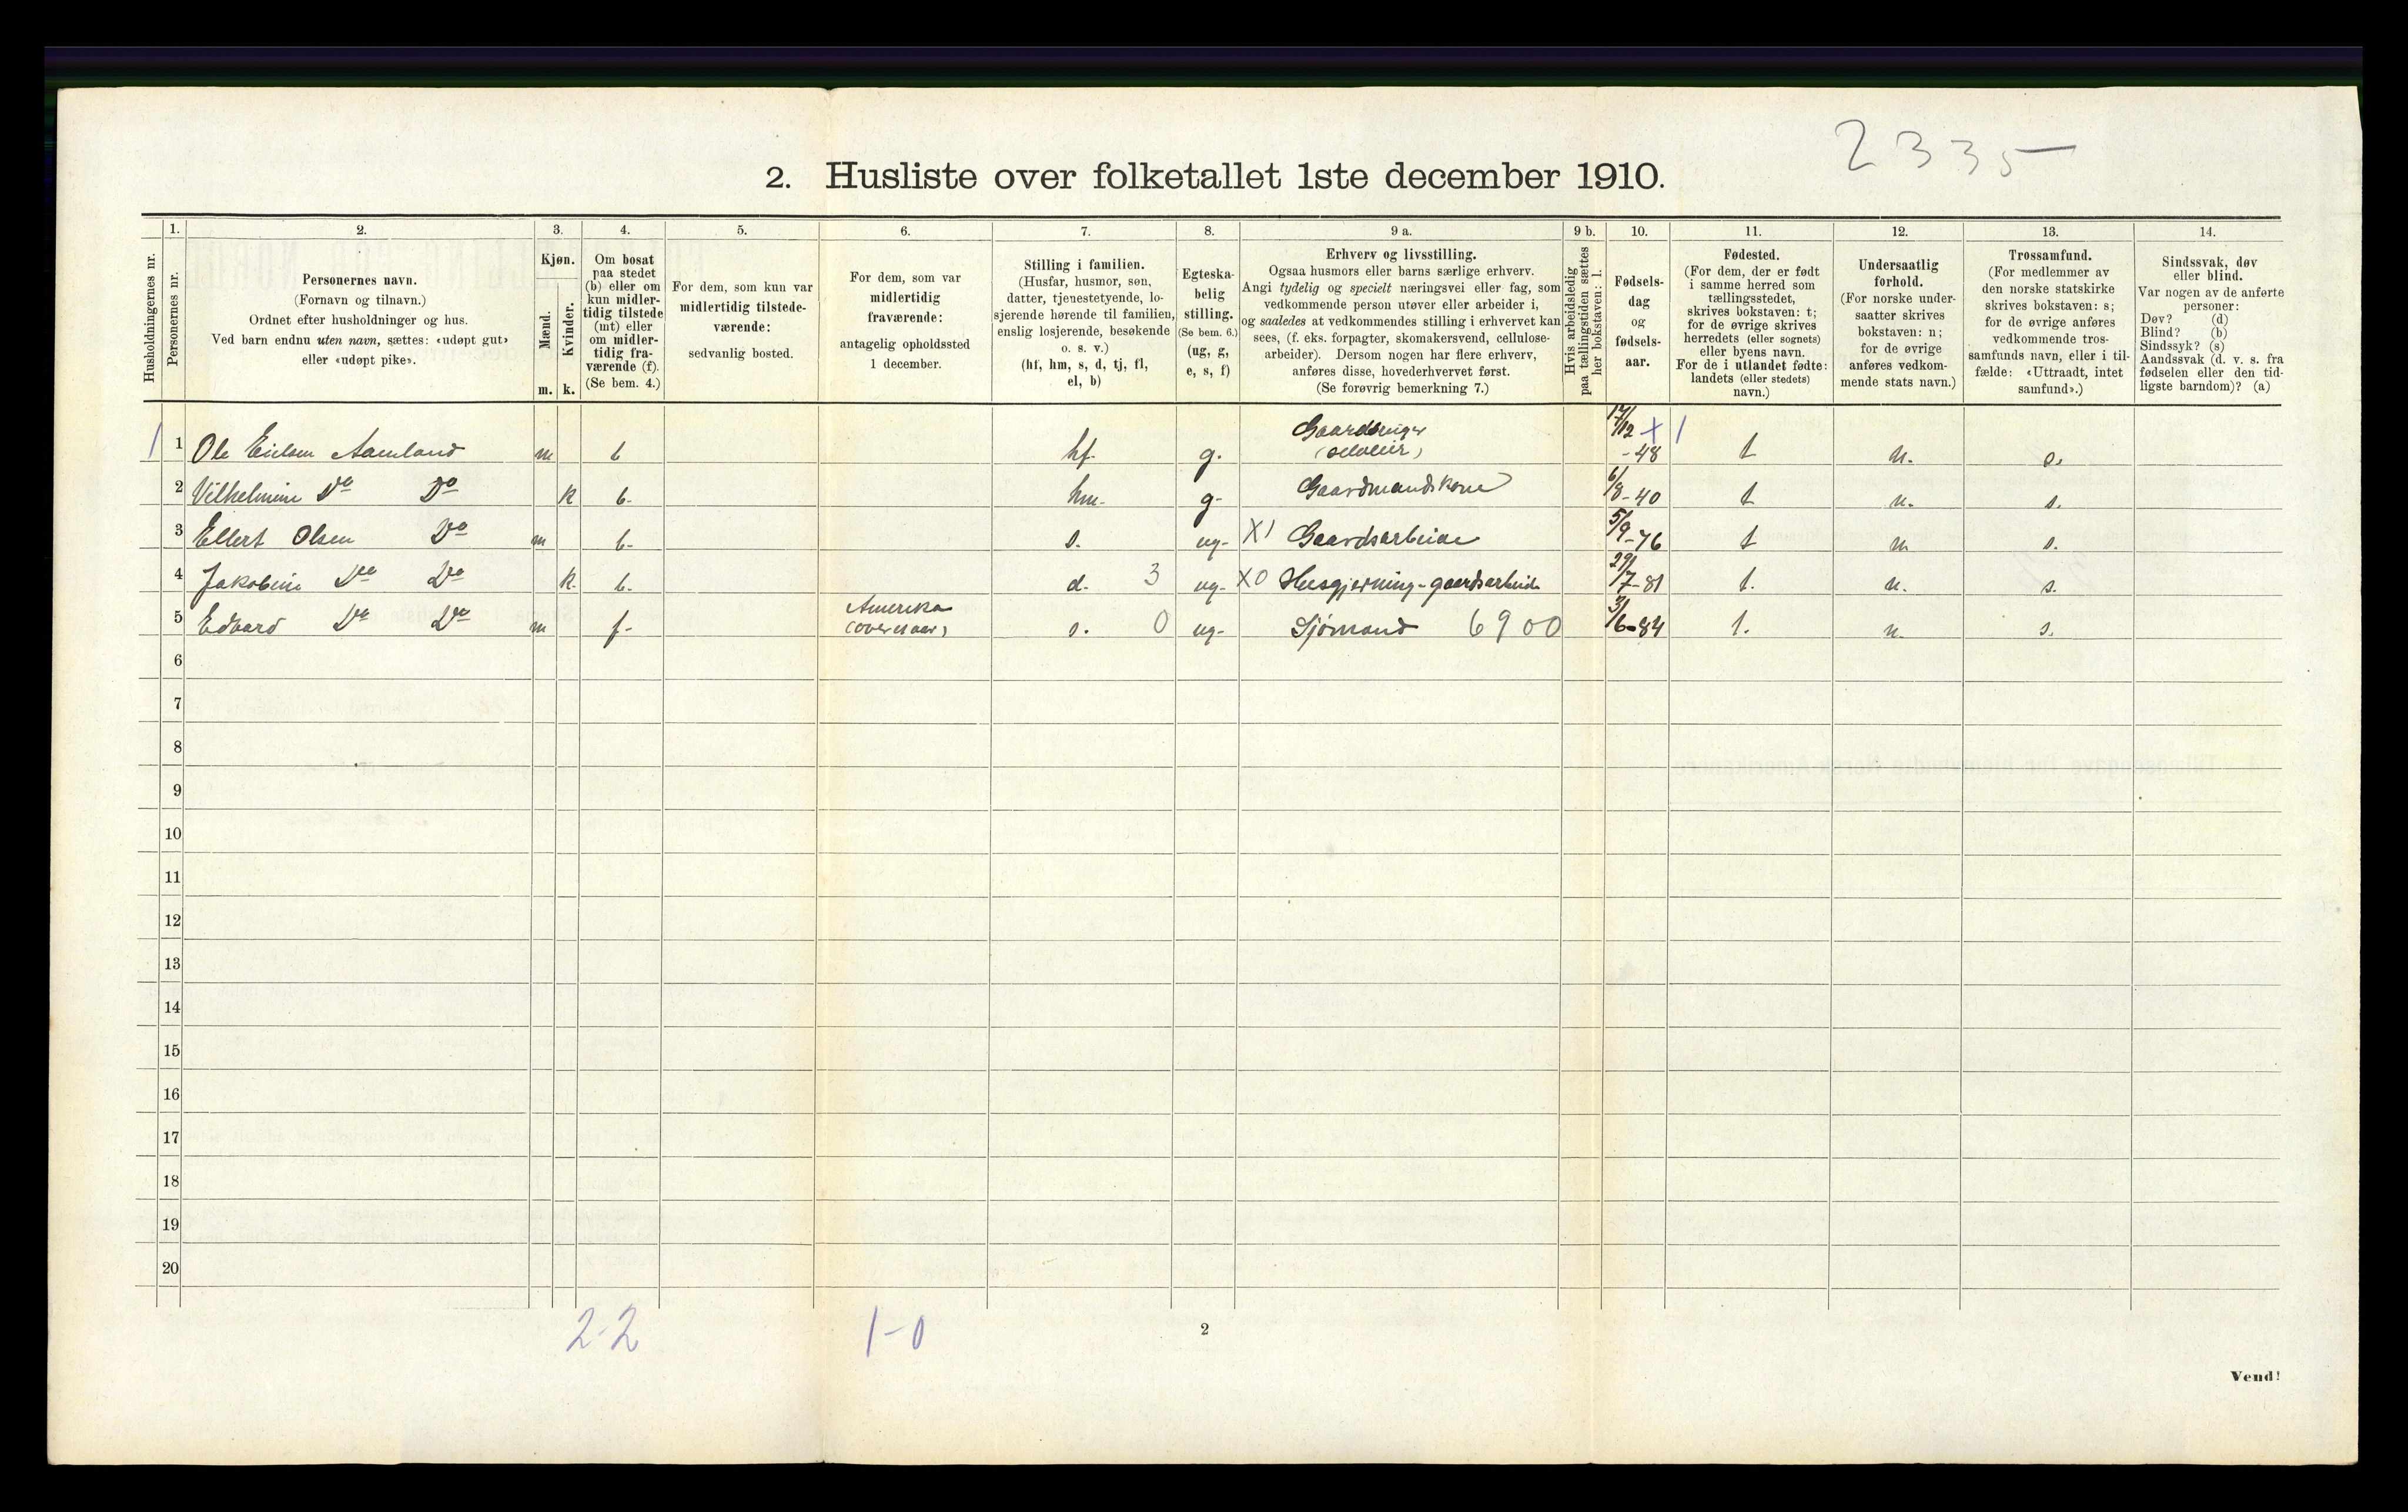 2335
2. Husliste over folketallet 1ste december 1910.
1. 2. 3. 4. 5. 6. 7. 8. 9 a. 9 b. 10. 11. 12. 13. 14.
Husholdningernes nr.
Personernes nr.
Personernes navn.
(Fornavn og tilnavn.)
Ordnet efter husholdninger og hus.
Ved barn endnu uten navn, sættes: «udøpt gut»
eller «udøpt pike».
Kjøn.
Mænd.
Kvinder.
m. k.
Om bosat
paa stedet
(b) eller om
kun midler-
tidig tilstede
(mt) eller
om midler-
tidig fra-
værende (f).
(Se bem. 4.)
For dem, som kun var
midlertidig tilstede-
værende:
sedvanlig bosted.
For dem, som var
midlertidig
fraværende:
antagelig opholdssted
1 december.
Stilling i familien.
(Husfar, husmor, søn,
datter, tjenestetyende, lo-
sjerende hørende til familien,
enslig losjerende, besøkende
o. s. v.)
(hf, hm, s, d, tj, fl,
el, b)
Egteska-
belig
stilling.
(Se bem. 6.)
(ug, g,
e, s, f)
Erhverv og livsstilling.
Ogsaa husmors eller barns særlige erhverv.
Angi tydelig og specielt næringsvei eller fag, som
vedkommende person utøver eller arbeider i,
og saaledes at vedkommendes stilling i erhvervet kan
sees, (f. eks. forpagter, skomakersvend, cellulose-
arbeider). Dersom nogen har flere erhverv,
anføres disse, hovederhvervet først.
(Se forøvrig bemerkning 7.)
Hvis arbeidsledig
paa tællingstiden sættes
her bokstaven: l.
Fødsels-
dag
og
fødsels-
aar.
Fødested.
(For dem, der er født
i samme herred som
tællingsstedet,
skrives bokstaven: t;
for de øvrige skrives
herredets (eller sognets)
eller byens navn.
For de i utlandet fødte:
landets (eller stedets)
navn.)
Undersaatlig
forhold.
(For norske under-
saatter skrives
bokstaven: n;
for de øvrige
anføres vedkom-
mende stats navn.)
Trossamfund.
(For medlemmer av
den norske statskirke
skrives bokstaven: s;
for de øvrige anføres
vedkommende tros-
samfunds navn, eller i til-
fælde: «Uttraadt, intet
samfund».)
Sindssvak, døv
eller blind.
Var nogen av de anførte
personer:
Døv? (d)
Blind? (b)
Sindssyk? (s)
Aandssvak (d. v. s. fra
fødselen eller den tid-
ligste barndom)? (a)
1 1 Ole Eielsen Aamland m b hf. g. Gaardbruger (selveier) 17/12 -48 × 1 t n. s.
2 Vilhelmine Do Do k b. hm. g- Gaardmandskone 6/8-40 t n. s.
3 Ellert Olsen Do m b. s. ug- X1 Gaardsarbeide 5/9-76 t n s.
4 Jakobine Do Do k. b. d. 3 ug- XO Husgjerning-gaardsarbeide 29/7-81 t. n. s.
5 Edvard Do Do m f- Amerika (over et aar) s. 0 ug- Sjömand 6900 3/6-84 t. n. s.
6
7
8
9
10
11
12
13
14
15
16
17
18
19
20
2-2 1-0
2
Vend!